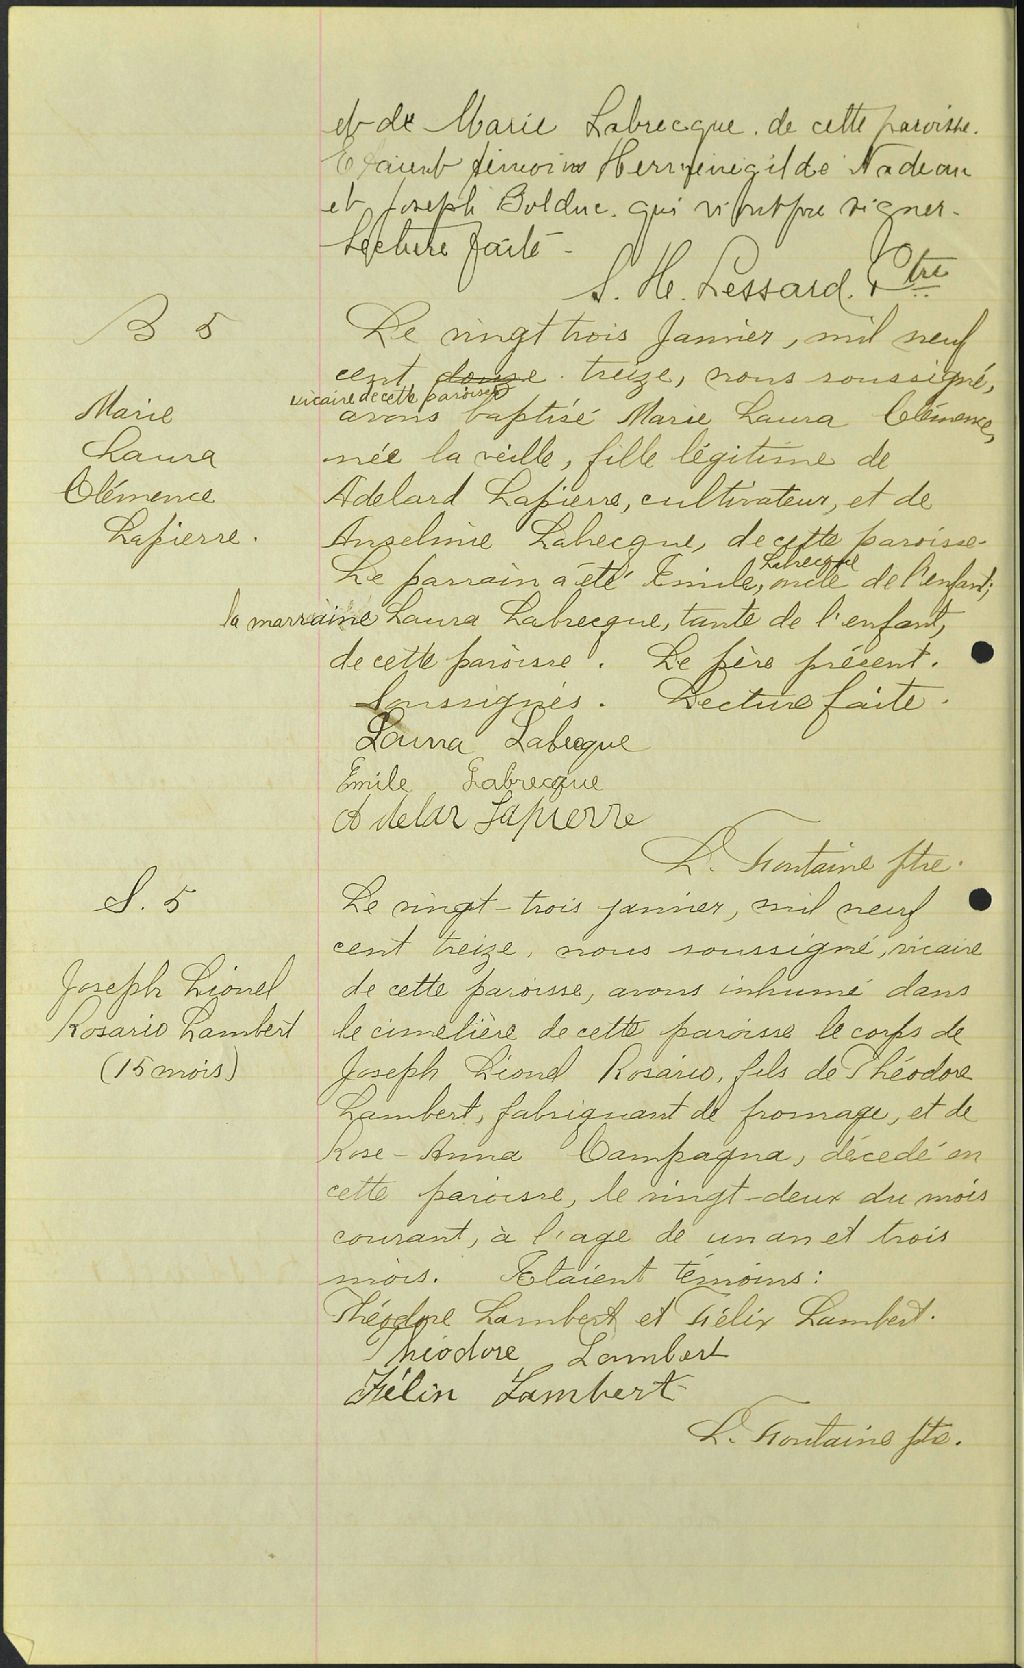 et de Marie Labrecque. de cette paroisse.
Etaient témoins Herménégilde Nadeau
et Joseph Bolduc. qui n'ont pu signer.
Lecture faite -
S. H. Lessard. Ptre
B 5
Le vingt trois Janvier, mil neuf
cent douze treize, nous soussigné,
vicaire de cette paroisse
Marie
avons baptisé Marie Laura Clémence,
Laura
née la veille, fille légitime de
Clémence
Adelard Lapierre, cultivateur, et de
Lapierre.
Anselmie Labrecque, de cette paroisse.
Labrecque
Le parrain a été Emile, oncle de l'enfant;
la marraine Laura Labrecque, tante de l'enfant,
de cette paroisse. Le père présent.
Soussignés. Lecture faite.
Laura Labecque
Emile Labrecque
Adelar Lapierre
L. Fontaine ptre.
S. 5
Le vingt-trois janvier, mil neuf
cent treize, nous soussigné, vicaire
Joseph Lionel
de cette paroisse, avons inhumé dans
Rosario Lambert
le cimetière de cette paroisse le corps de
(15 mois)
Joseph Lionel Rosario, fils de Théodore
Lambert, fabriquant de fromage, et de
Rose-Anna Campagna, décedé en
cette paroisse, le vingt-deux du mois
courant, à l'age de un an et trois
mois. Etaient témoins:
Théodore Lambert et Félix Lambert.
Théodore Lambert
Félix Lambert
L. Fontaine ptr.